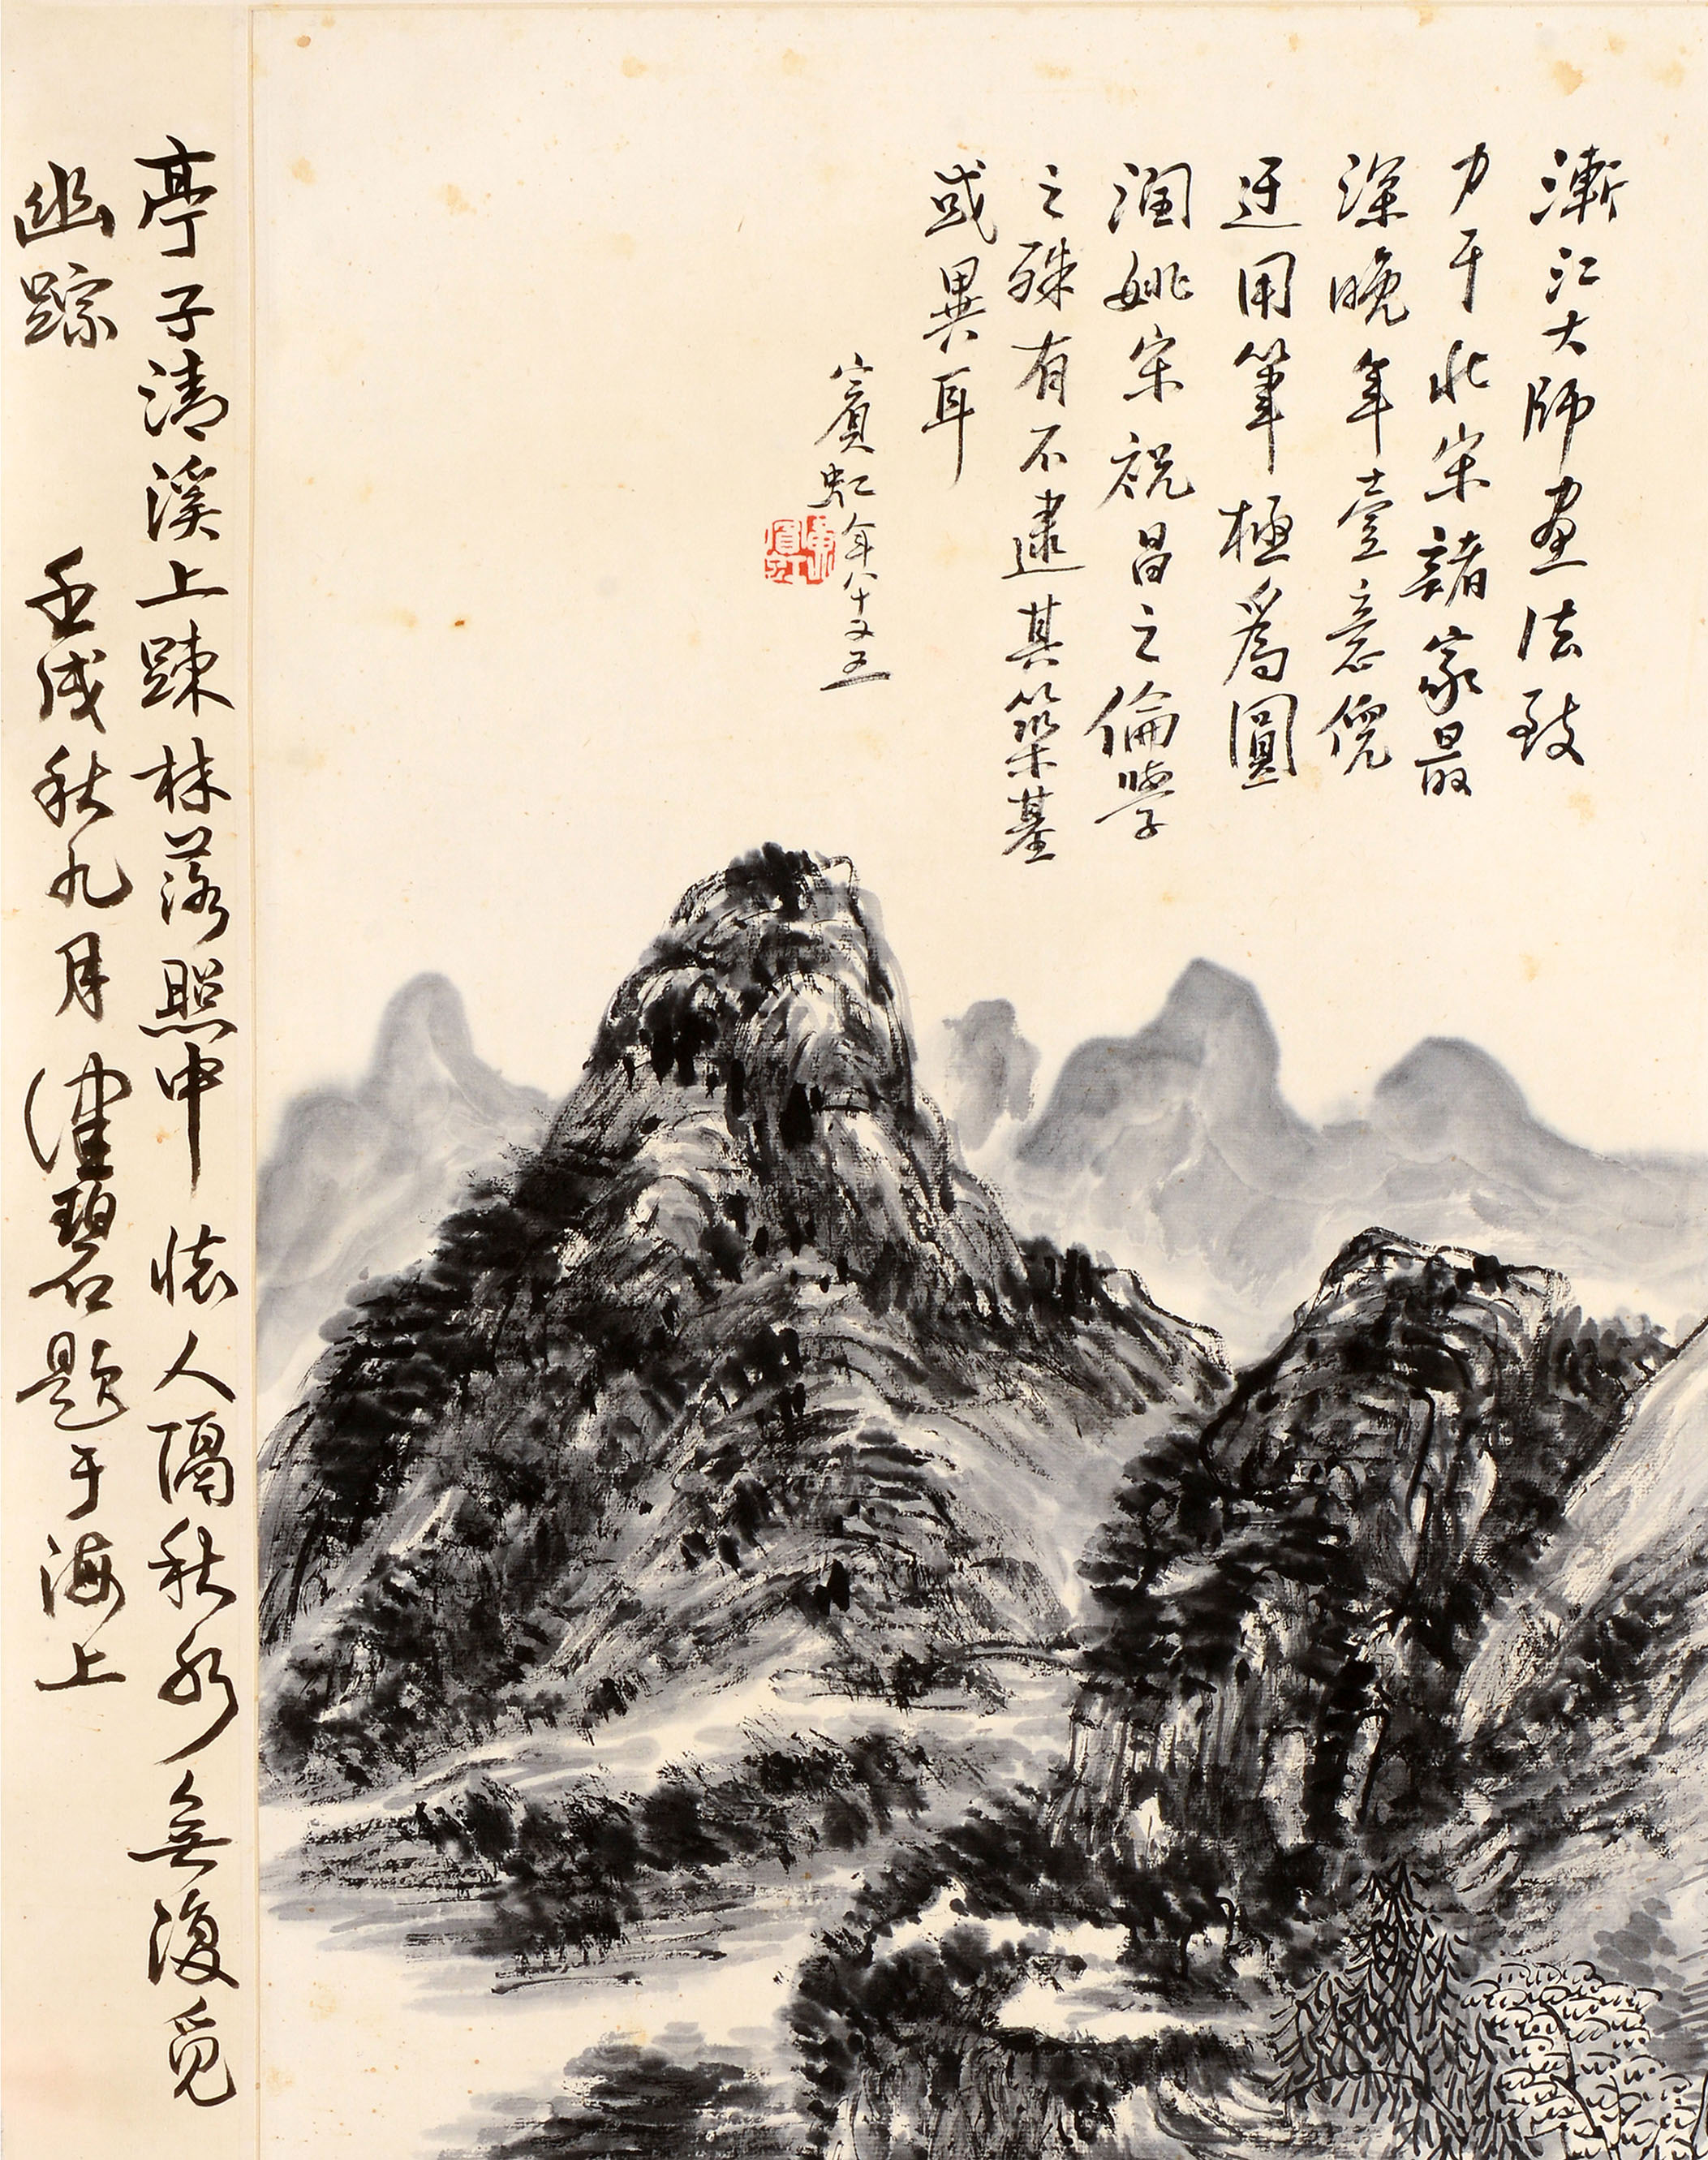 漸江大師画法致
力于北宋諸家最
深晚年壹意倪
迂用筆極爲圓
潤姚宋祝昌之倫學
之殊有不逮其築基
或異耳
賓虹年八十又五
黃賓虹
亭子清溪上踈林落照中懷人隔秋水無復覓
幽踪 壬戌秋九月 碧石題于海上